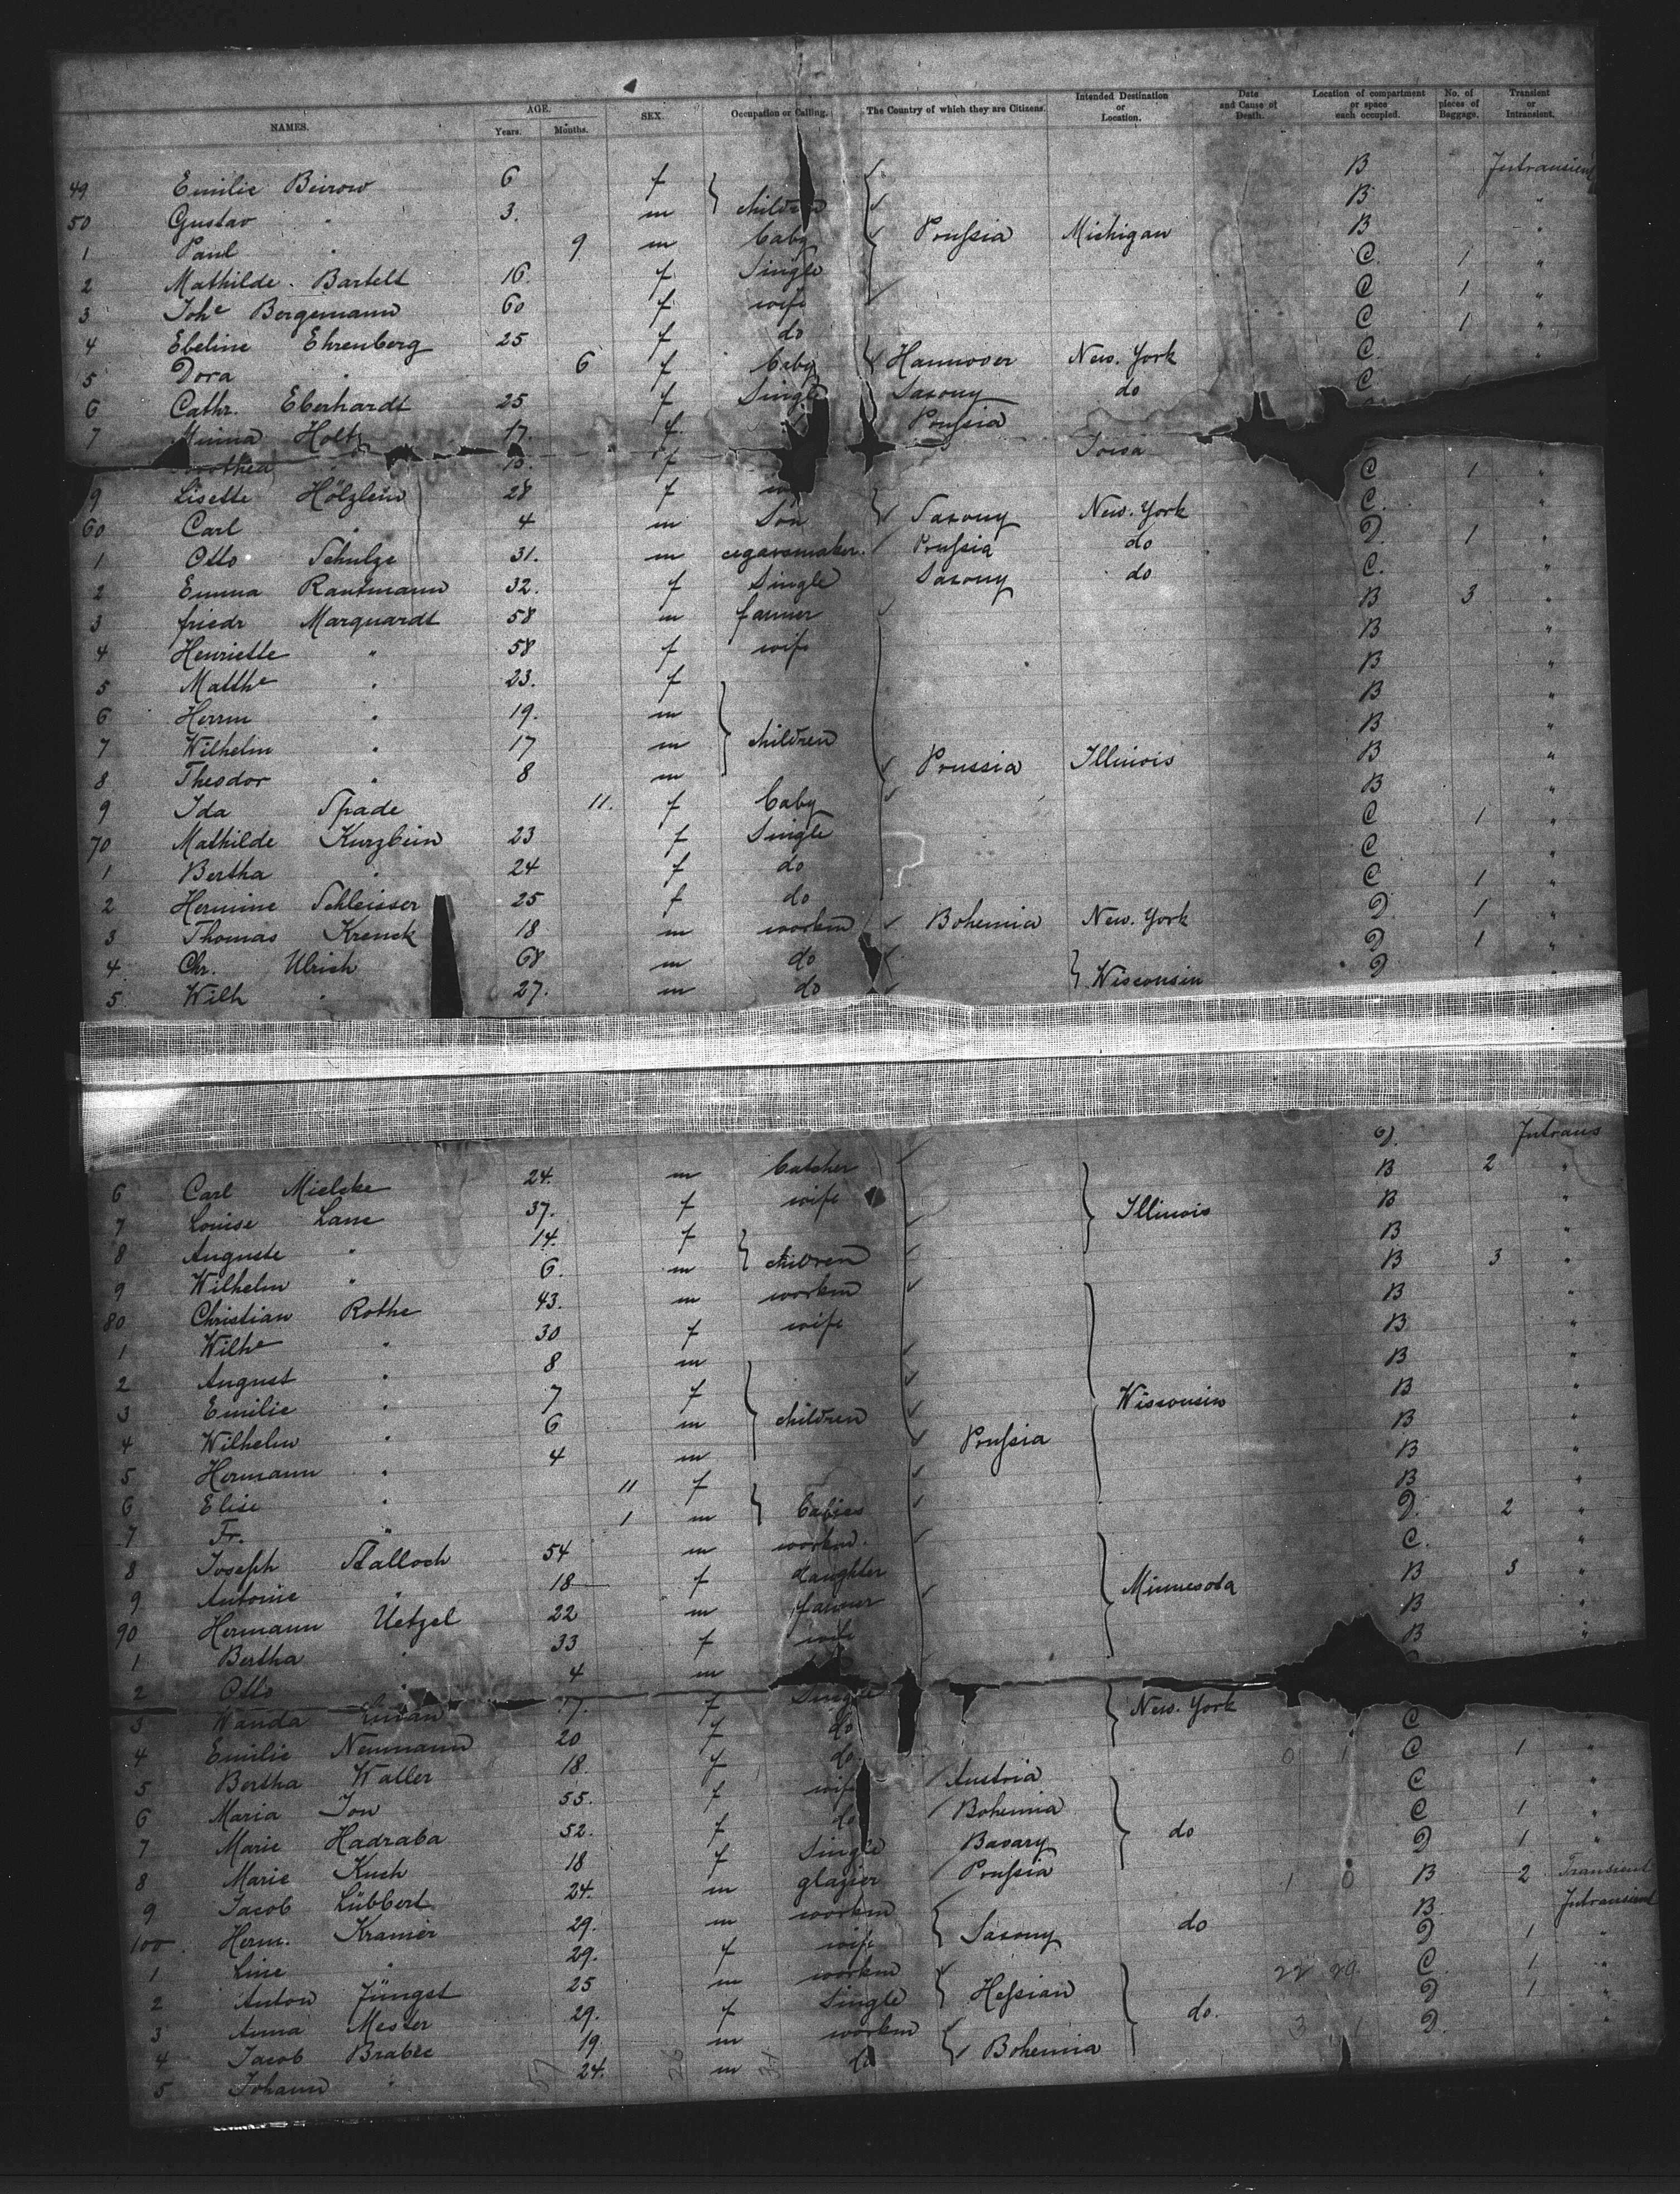 NAMES. AGE. Years. Months. SEX. Occupation or Calling. The Country of which they are Citizens. Intended Destination or Location. Date and Cause of Death. Location of compartment or space each occupied. No. of pieces of Baggage. Transient or Intransient.
49 Emilie 6 f B Intransient
50 Gustav " 3. m children B "
1 Paul " 9 m baby Prussia Michigan B "
2 Mathilde Bartelt 16. f Single C. 1 "
3 Johe Bergemann 60 f wife C 1 "
4 Ebeline Ehrenberg 25 f do C 1 "
5 Dora " 6 f baby Hannover New. York C. "
6 Cathr. Eberhardt 25 f Single Saxony do C
7 Minna Holtz 17. f. Prussia
f
9 Lisette Hölzlein 28 f C 1 "
60 Carl " 4 m Son Saxony New. York C. "
1 Otto Schulze 31. m cigarsmaker. Prussia do D. 1
2 Emma Rautmann 32. f Single Saxony do C. "
3 friedr Marquardt 58 m farmer B 3 "
4 Henriette " 58 f wife B "
5 Mathe " 23. f B "
6 Herrm " 19. m B "
7 Wilhelm " 17 m children B "
8 Theodor " 8 m Prussia Illinois B "
9 Ida Spade 11. f baby B "
70 Mathilde Kurzbein 23 f Single C 1 "
1 Bertha " 24 f do C "
2 Hermine Schleisser 25 f do C 1 "
3 Thomas Krenek 18 m workm Bohemia New. York D 1 "
4 Chr. Ulrich 68 m do D 1 "
5 Wilh " 27. m do Wisconsin D
6 Carl Mielcke 24. m D. Intrans
7 Louise Lane 37. f wife Illinois B 2 "
8 Auguste " 14. f B "
9 Wilhelm " 6. m children B "
80 Christian Rothe 43. m workm B 3 "
1 Wilhe " 30 f wife B "
2 August " 8 m B "
3 Emilie " 7 f B "
4 Wilhelm " 6 m children Wisconsin B "
5 Hermann " 4 m Prussia B "
6 Elise " 11 f B
7 Fr. " 1 m babies B "
8 Joseph 54 m workm. D. 2 "
9 Antonie " 18 f daughter Minnesota C. "
90 Hermann Uetzel 22 m farmer B 3 "
1 Bertha " 33 f wife B "
2 Otto " 4 m B "
3 Wanda 17. f Single New. York
4 Emilie Neumann 20 f do C "
5 Bertha Waller 18. f do Austria C 1 "
6 Maria 55. f wife Bohemia C "
7 Marie Hadraba 52. f do Bavary do C 1
8 Marie Kuch 18 f Single Prussia D 1 "
9 Jacob Lübbert 24. m glazier B 2 Transient
100 Herm. Kramer 29. m workm Saxony do B. Intransient
1 Line " 29. f wife D 1 "
2 Anton Jüngst 25 m workm Hessian C 1 "
3 Anna Mester 29. f Single do. D 1 "
4 Jacob 19 m workm Bohemia D. "
5 Johann " 24. m do